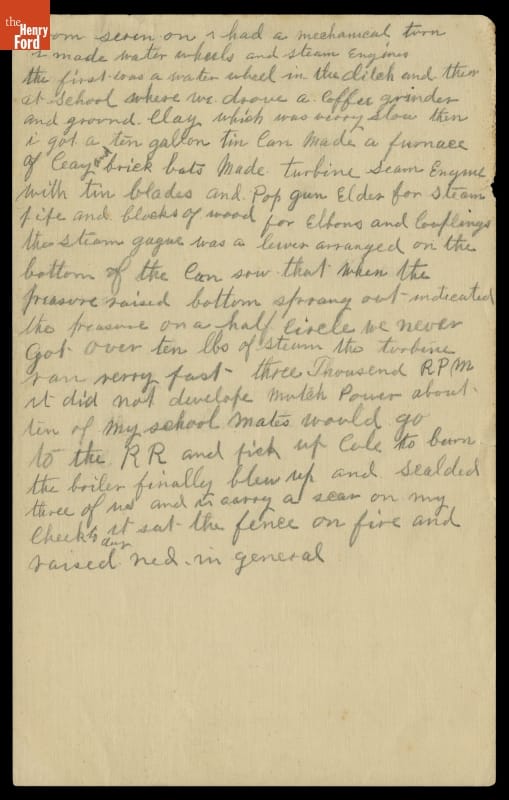 the
Henry
Ford
from seven on i had a mechanical turn
i made water wheels and steam Engines
the first was a water wheel in the ditch and then
at School where we drove a Coffee grinder
and ground Clay which was verry slow then
i got a ten gallon tin Can Made a furnace
of Clay and brick bats Made turbine Steam Engine
with tin blades and Pop gun Elder for Steam
pipe and blocks of wood for Elbons and Couplings
the Steam gague was a lever arranged on the
bottom of the Can sow that when the
preasure raised bottom sprang out indicated
the preasure on a half Circle we never
Got over ten lbs of steam the turbine
ran verry fast three Thousend RPM
it did not develope mutch Power about
ten of my school mates would go
to the RR and pick up Cole to burn
the boiler finally blew up and scalded
three of us and i carry a scar on my
Cheek to day it sat the fence on fire and
raised ned in general